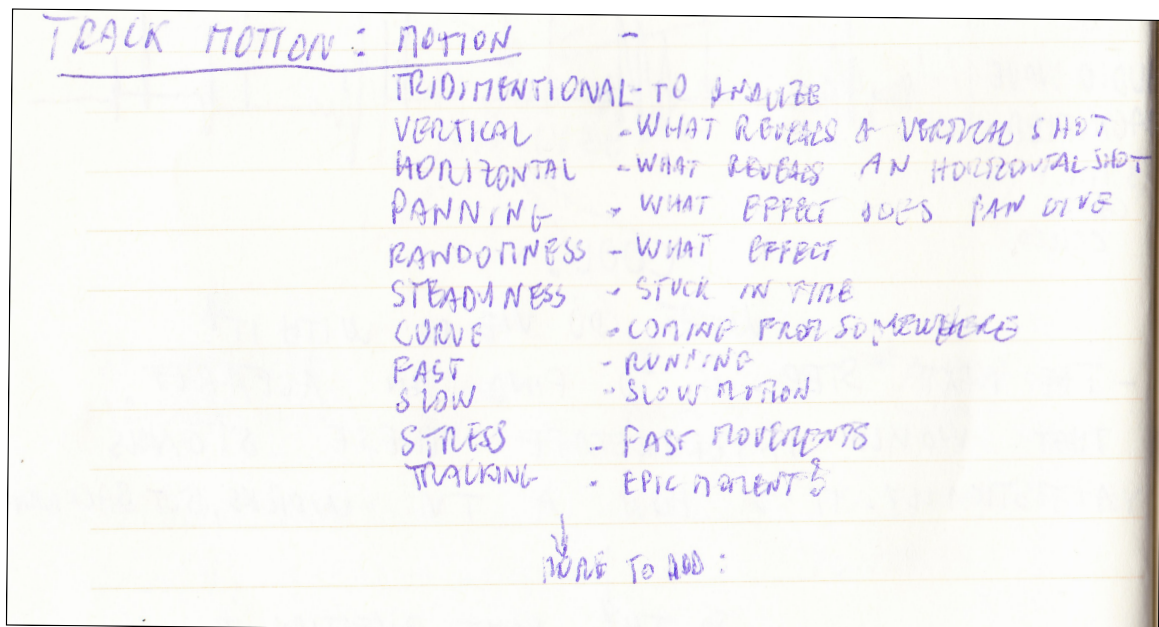 TRACK MOTION: MOTION -
TRIDIMENTIONAL - TO ANALIZE
VERTICAL - WHAT REVEALS A VERTICAL SHOT
HORIZONTAL - WHAT REVEALS AN HORIZONTAL SHOT
PANNING - WHAT EFFECT DOES PAN GIVE
RANDOMNESS - WHAT EFFECT
STEADINESS - STUCK IN TIME
CURVE - COMING FROM SOMEWHERE
FAST - RUNNING
SLOW - SLOW MOTION
STRESS - FAST MOVEMENTS
TRACKING - EPIC MOMENT?
MORE TO ADD: